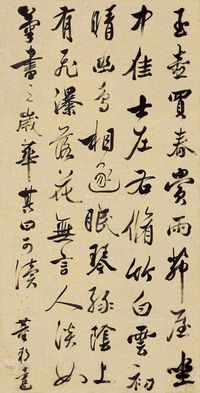 玉壺買春賞雨茆屋坐
中佳士左右脩竹白雲初
晴幽鳥相逐眠琴綠陰上
有飛瀑落花無言人淡如
菊書之歲華其曰可讀